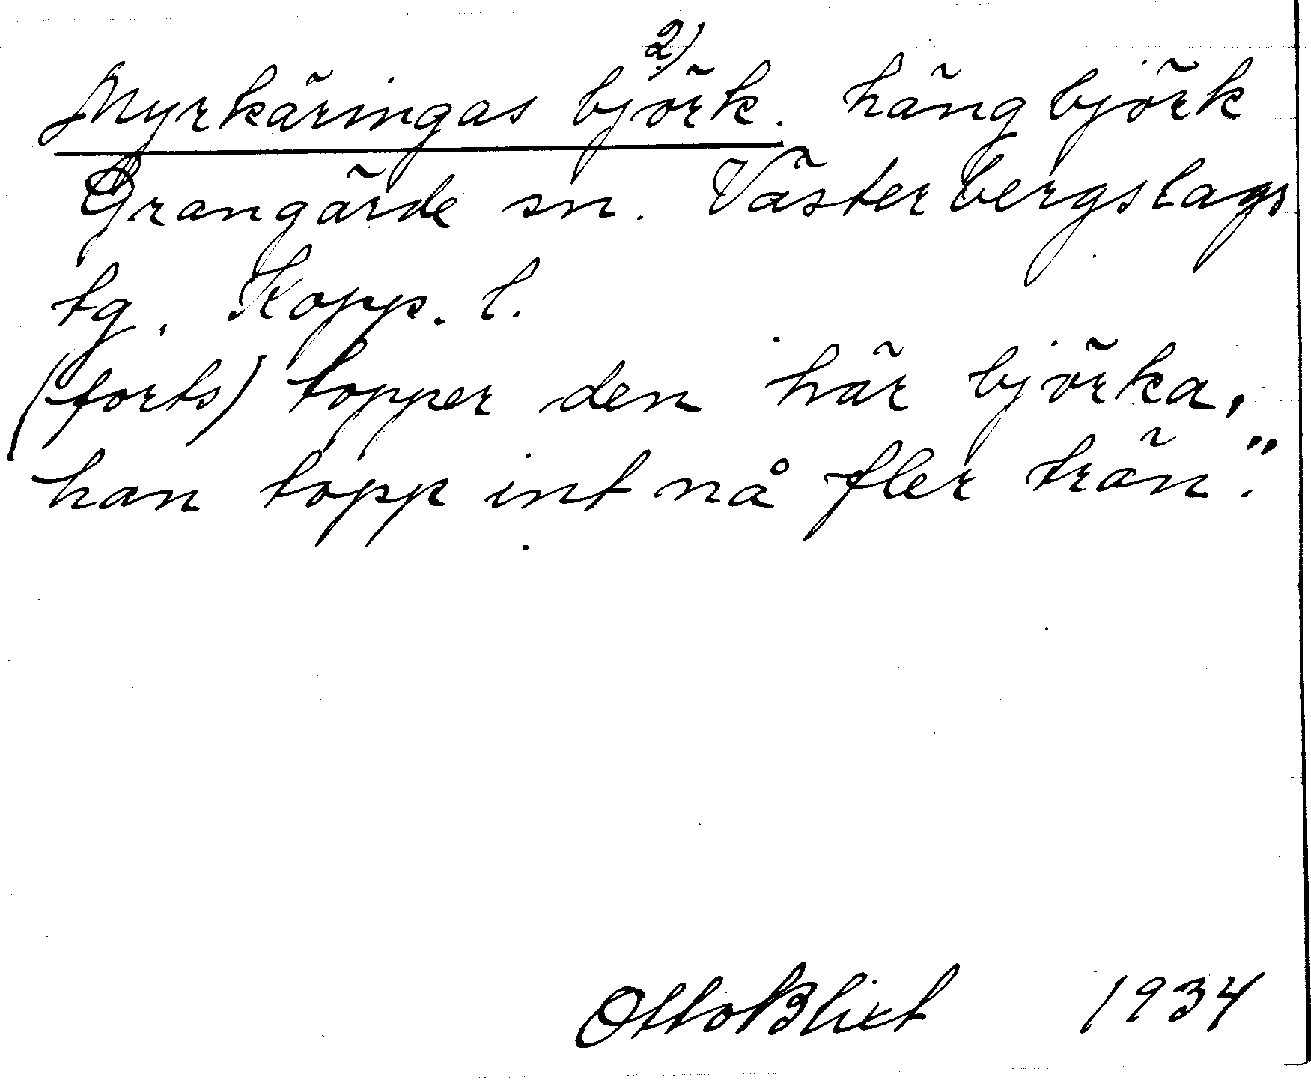 2)
Myrkäringas björk. hängbjörk
Grangärde sn. Västerbergslags
tg. Kopp. l.
(forts) topper den här björka,
han topp int nå fler trän."
Otto Blixt 1934